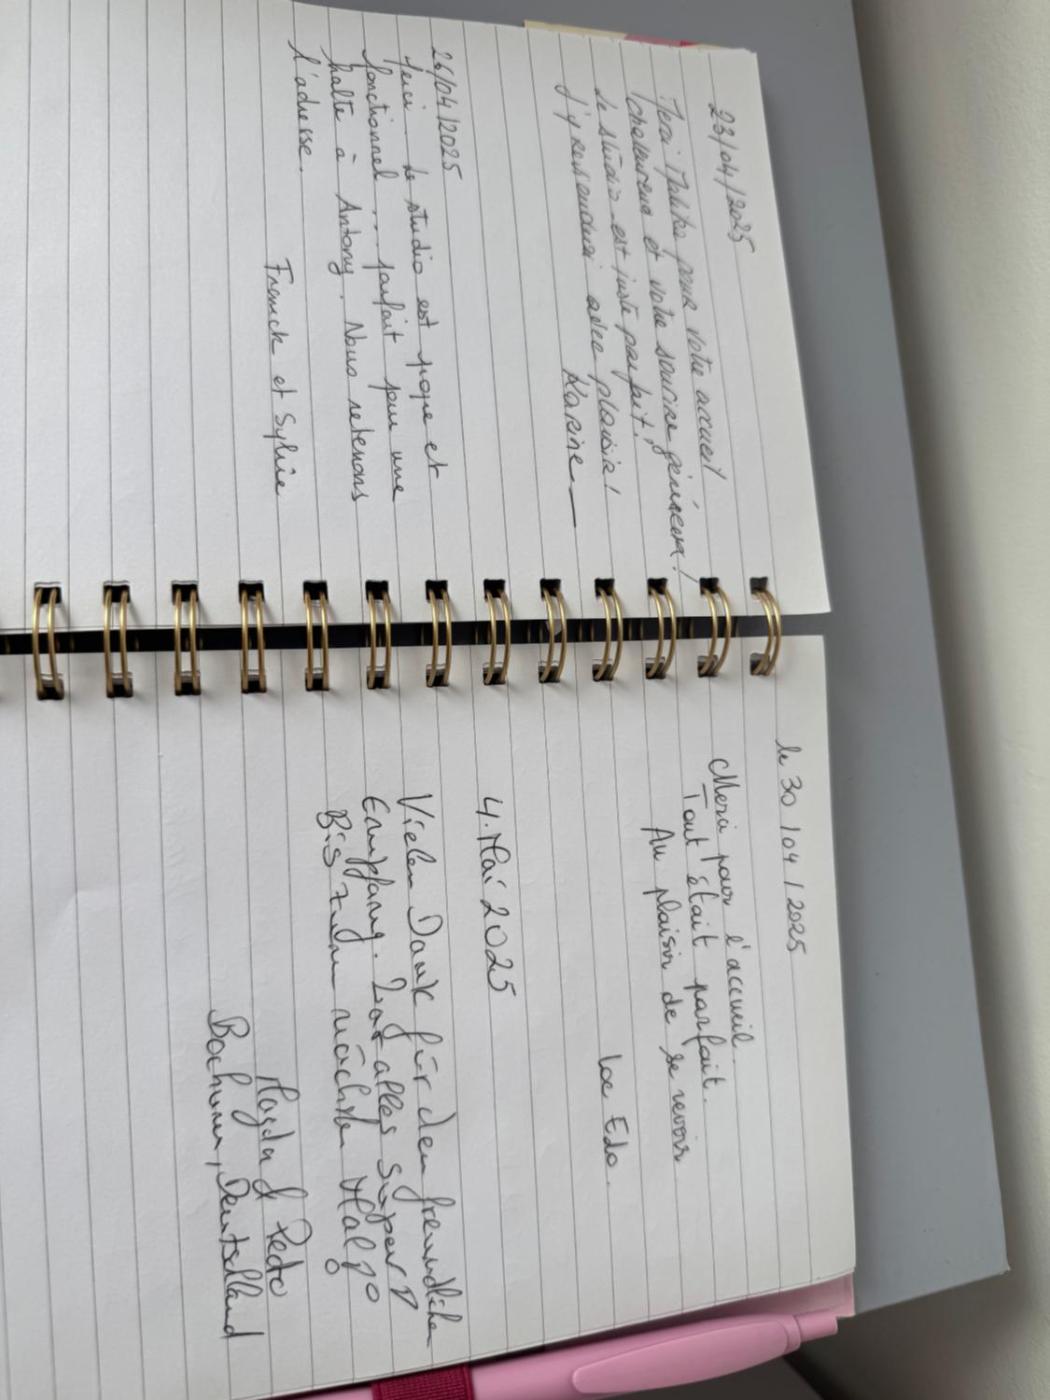 23/04/2025
Merci pour votre accueil
chaleureux et votre sourire généreux!
Le studio est juste parfait!
J'y reviendrai avec plaisir!
Karine
26/04/2025
Merci. Le studio est propre et
fonctionnel ... parfait pour une
halte à Antony. Nous retenons
l'adresse.
Franck et Sylvie
le 30/04/2025
Merci pour l'accueil.
Tout était parfait.
Au plaisir de se revoir
Edo.
4. Mai 2025
Vielen Dank für den freundlichen
Empfang. Hat alles super!
Bis zum nächsten Mal
Magda & Pedo
Bochum, Deutschland